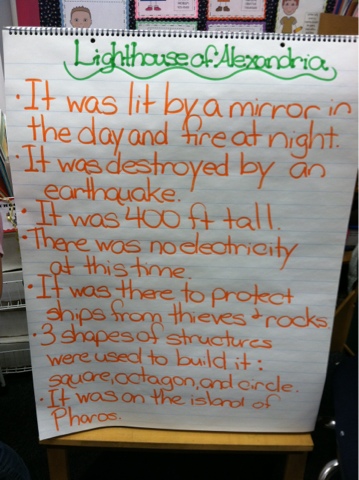 Lighthouse of Alexandria
· It was lit by a mirror in
the day and fire at night.
· It was destroyed by an
earthquake.
· It was 400 ft tall.
· There was no electricity
at this time.
· It was there to protect
ships from thieves & rocks.
· 3 shapes of structures
were used to build it:
square, octagon, and circle.
· It was on the island of
Pharos.